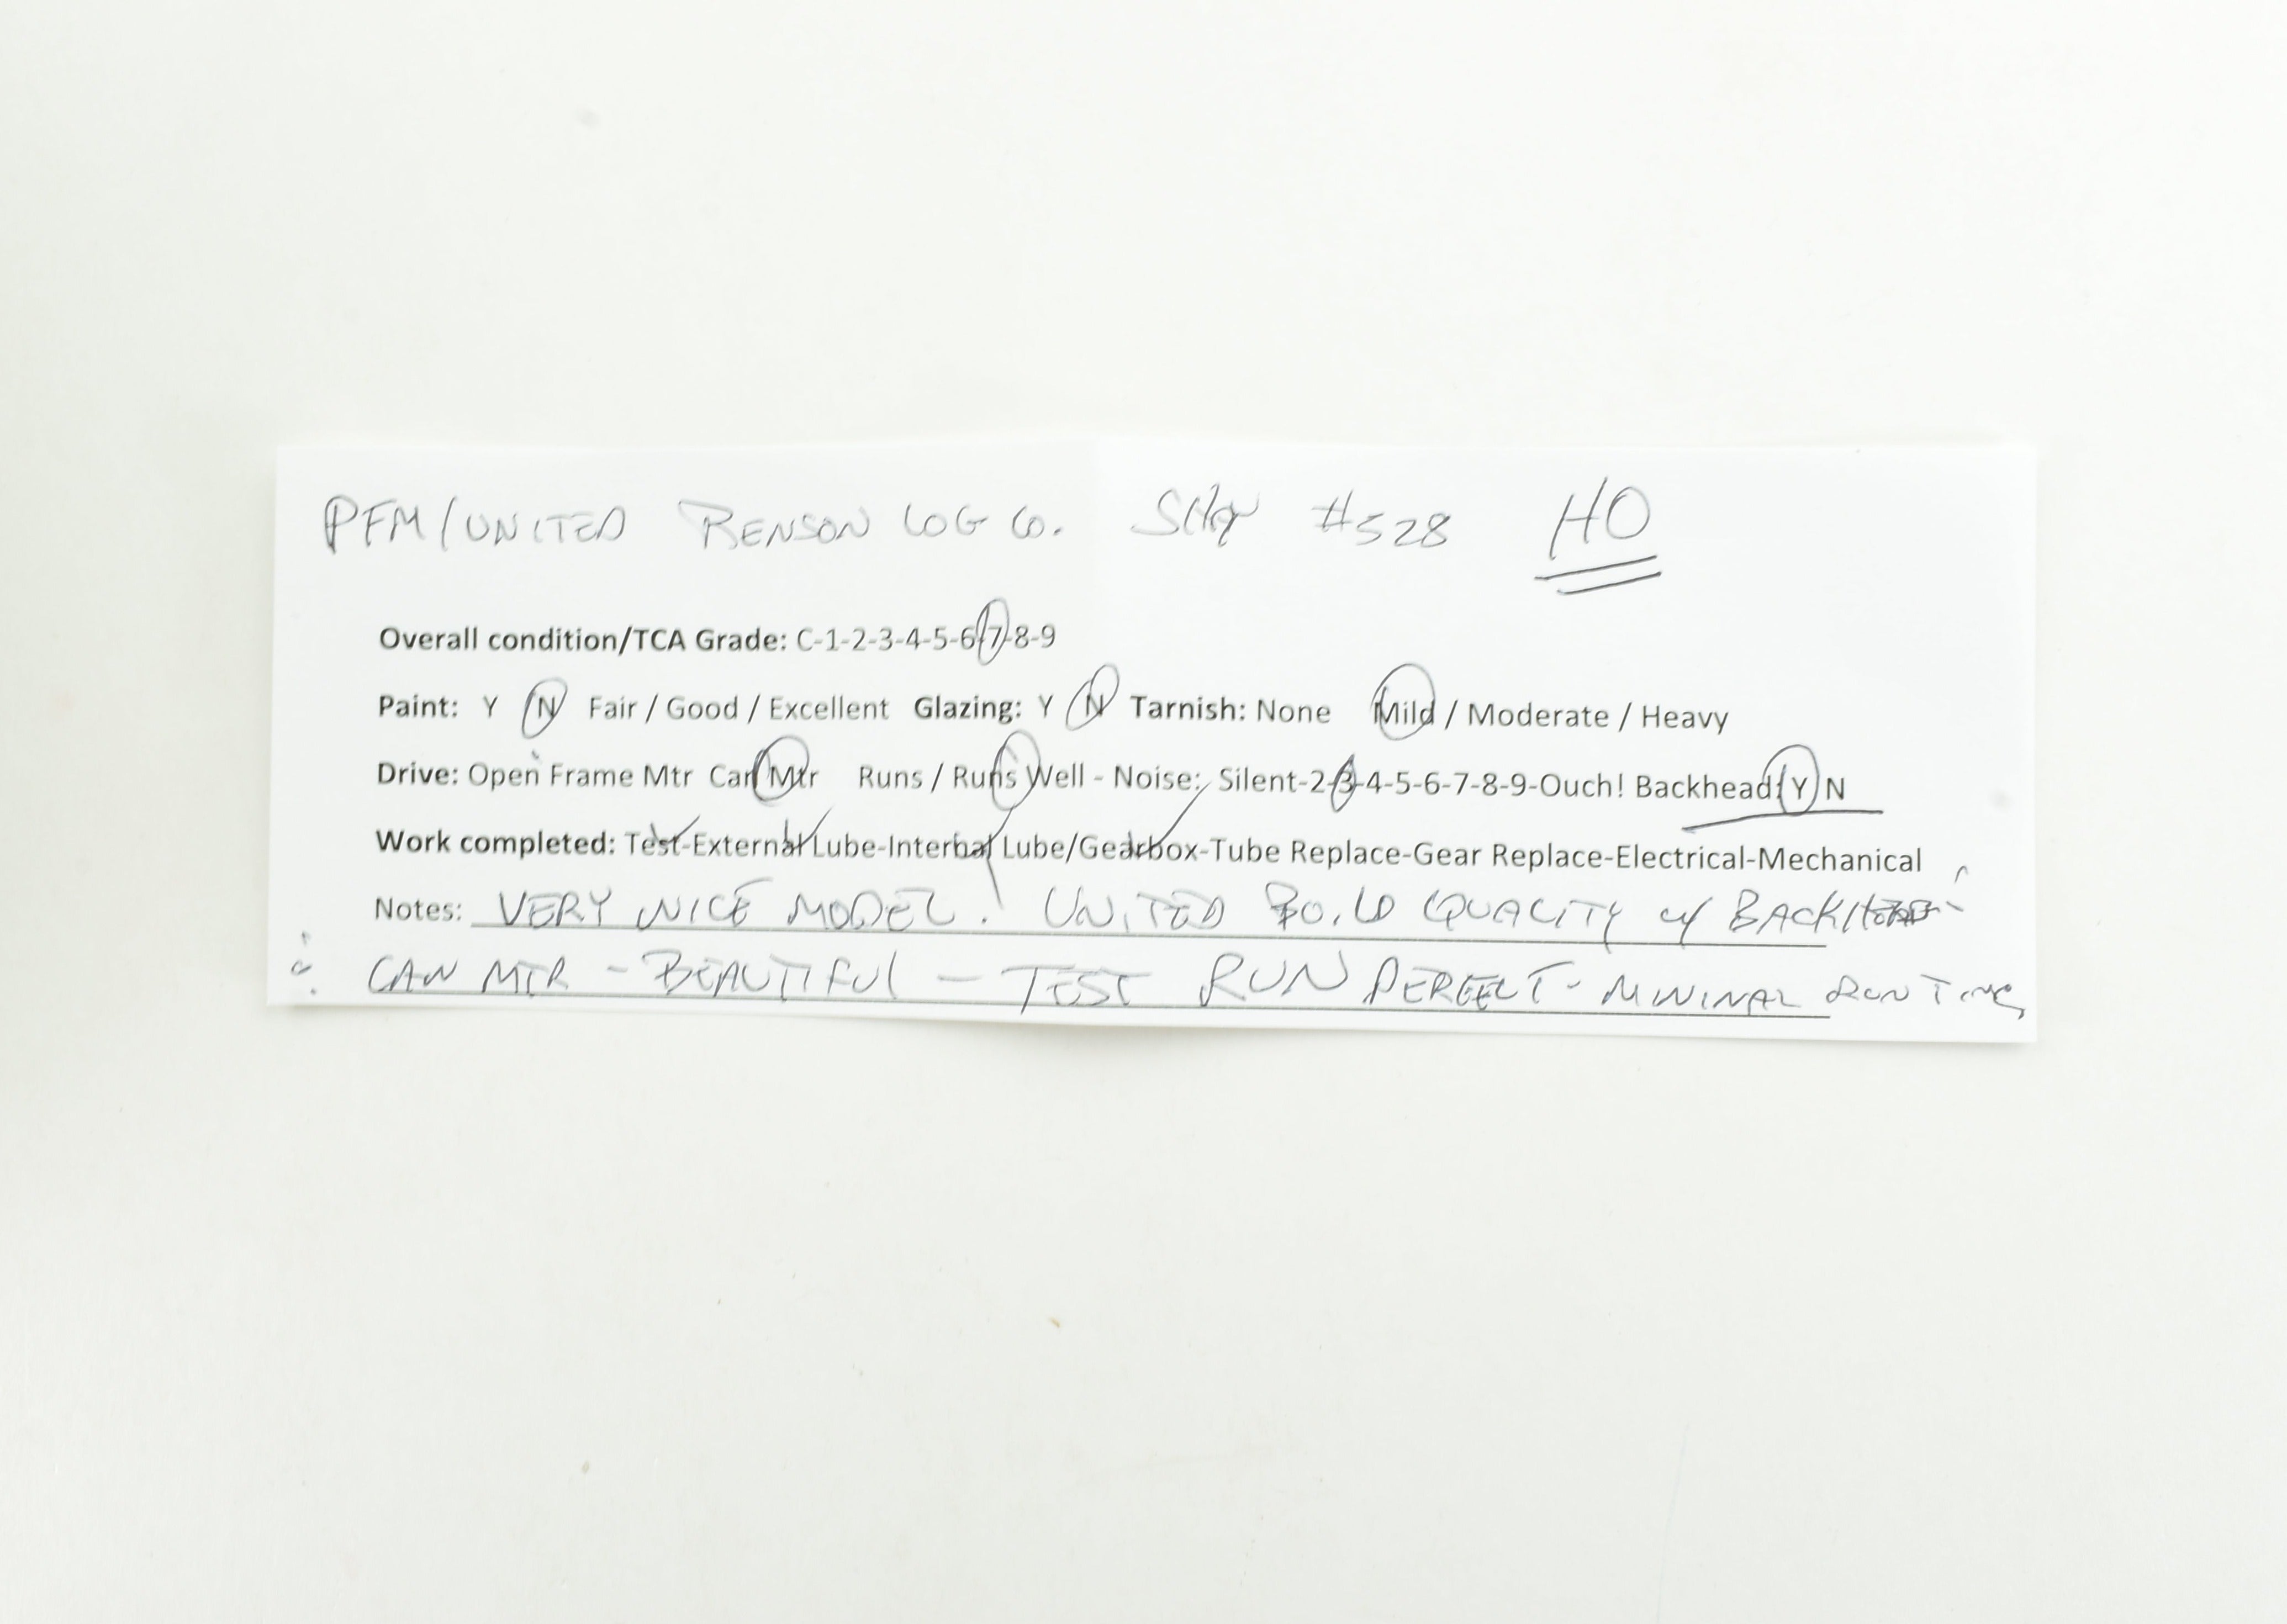 PFM/UNITED BENSON LOG CO. Shay #528 HO
Overall condition/TCA Grade: C-1-2-3-4-5-6-7-8-9
Paint: Y N Fair / Good / Excellent Glazing: Y N Tarnish: None Mild / Moderate / Heavy
Drive: Open Frame Mtr Can Mtr Runs / Runs Well - Noise: Silent-2-3-4-5-6-7-8-9-Ouch! Backhead: Y N
Work completed: Test-External Lube-Internal Lube/Gearbox-Tube Replace-Gear Replace-Electrical-Mechanical
Notes: VERY NICE MODEL! UNITED BUILD QUALITY w/ BACKHEAD-
CAN MTR - BEAUTIFUL - TEST RUN PERFECT - MINIMAL RUN TIME